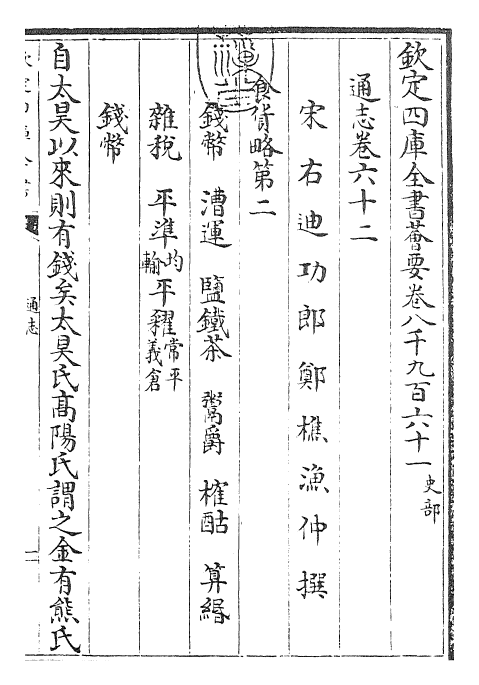 欽定四庫全書薈要卷八千九百六十一 史部
通志卷六十二
宋右迪功郎鄭樵漁仲撰
食貨略第二
錢幣 漕運 鹽鐵茶 鬻爵 榷酤 算緡
雜稅 平準均輸 平糴常平義倉
錢幣
自太昊以來則有錢矣太昊氏高陽氏謂之金有熊氏
通志
一